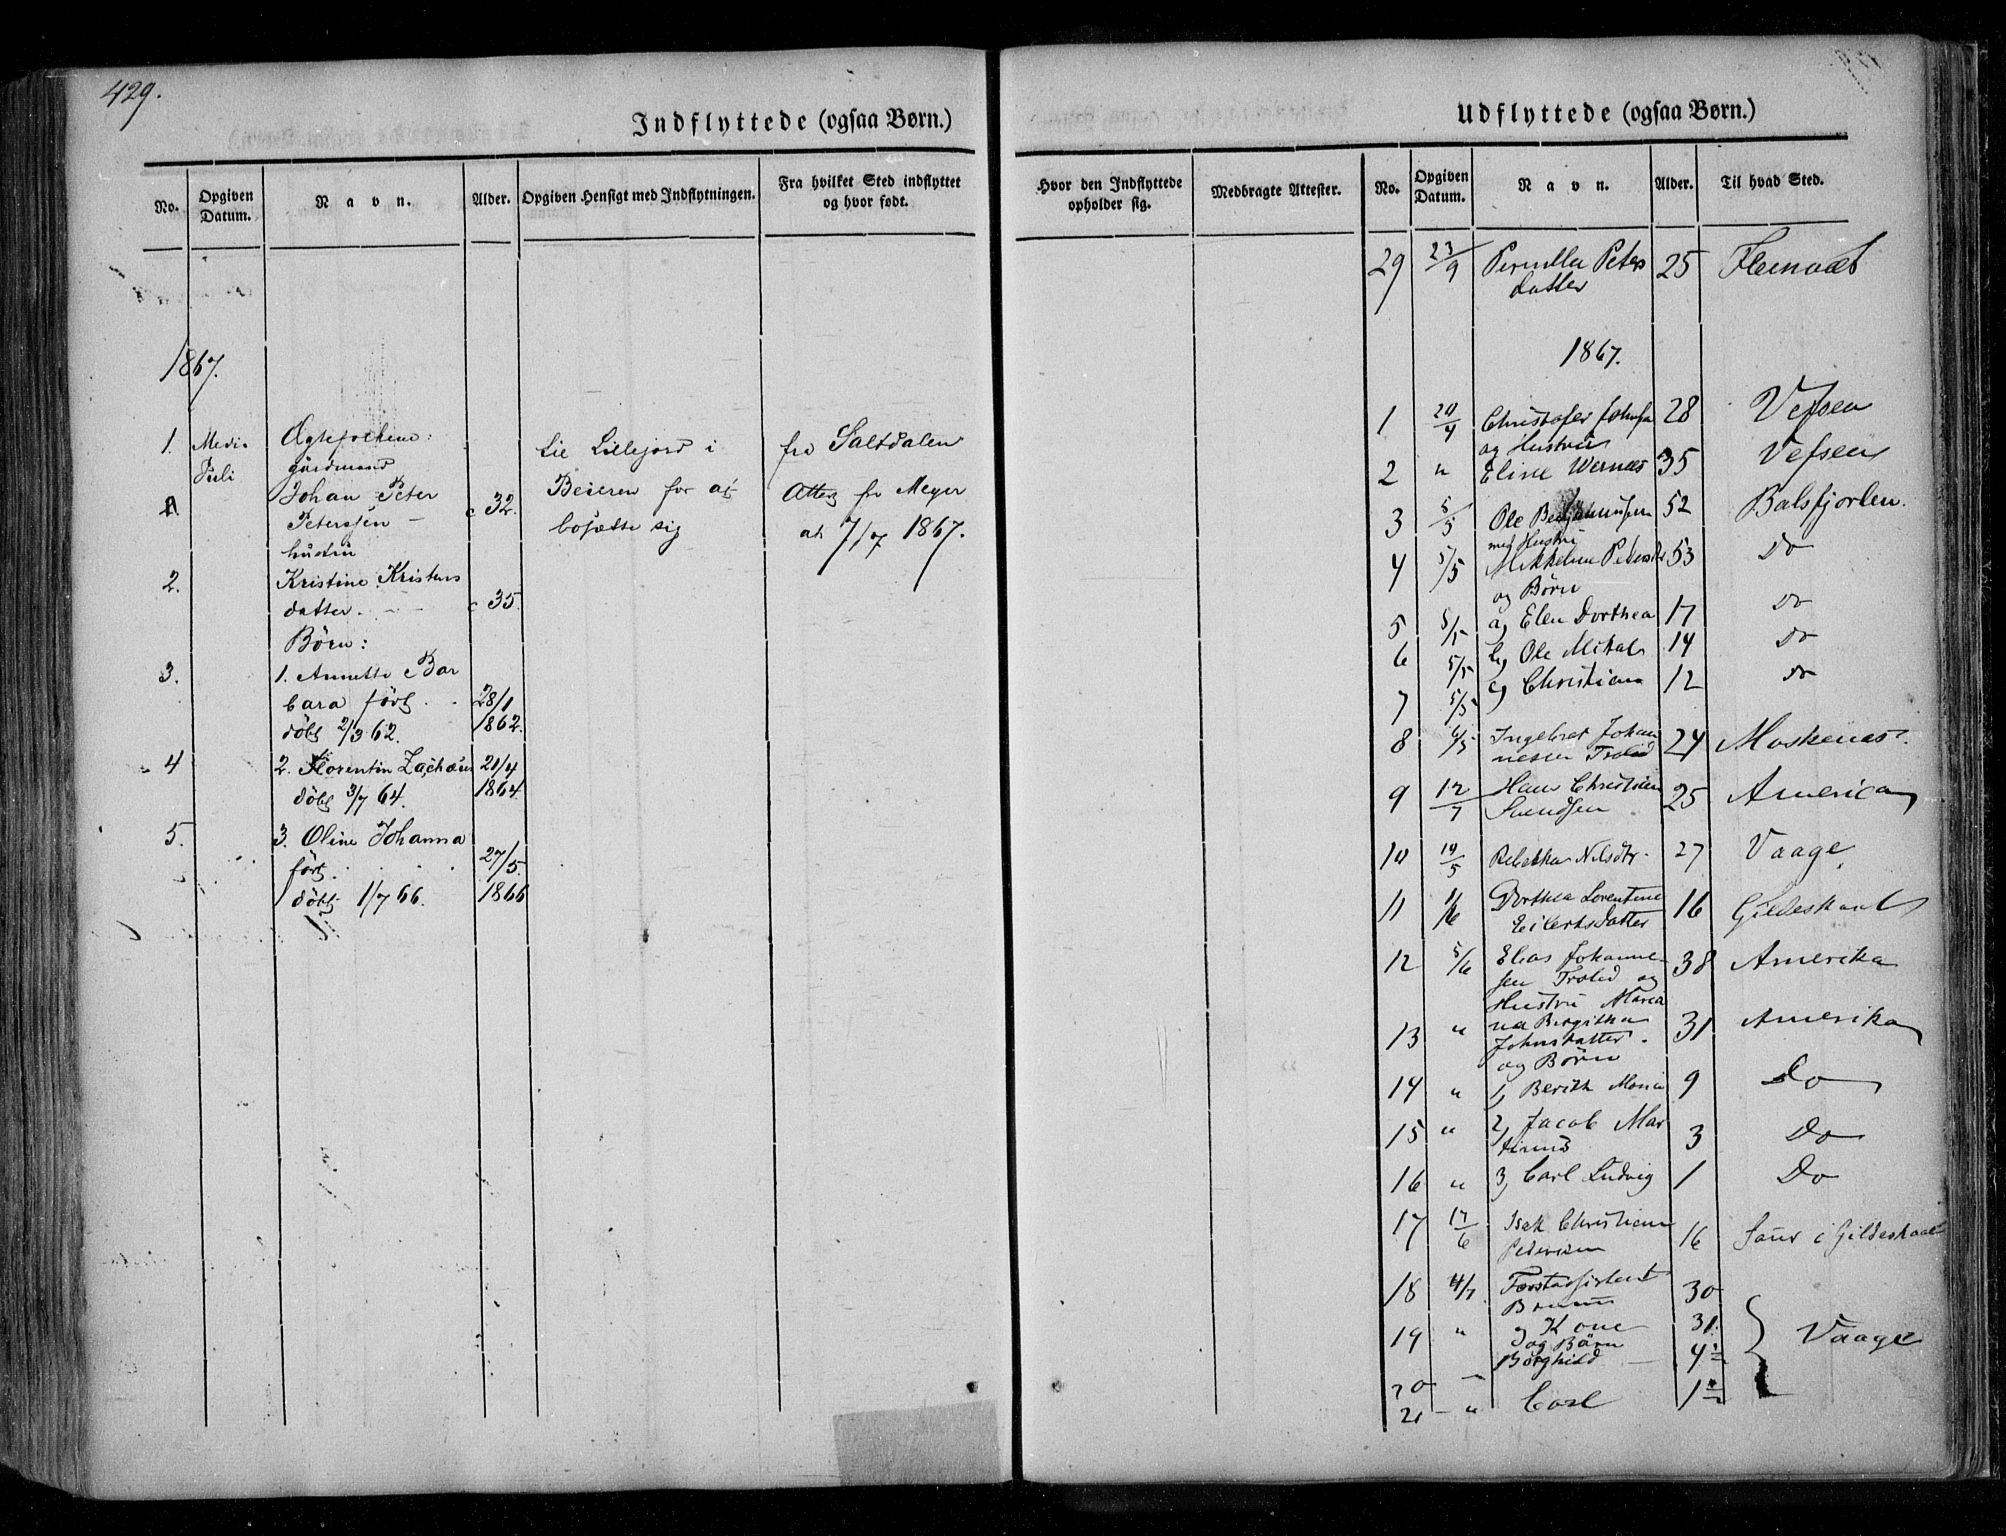 429.
Indflyttede (ogsaa Børn.)
No.
Opgiven Datum.
Navn.
Alder.
Opgiven Hensigt med Indflytningen.
Fra hvilket Sted indflyttet og hvor født.
1867.
1. Medio Juli
Ægtefolkene:
gaardmand
Johan Peter
Peterssen —
c 32.
til Lillejord i
Beieren for at
bosætte sig
fra Saltdalen
Attest fr Meyer
at 7/7 1867.
hustru
2. Kristine Kristens
datter. - - c 35.
Børn:
3. 1. Annette Bar
bara født . . 28/1
døbt 2/3 62. 1862.
4 2. Florentin Zachæus 21/4
døbt 3/7 64. 1864.
5. 3. Oline Johanna
født . . . 27/5.
døbt 1/7 66. 1866
Udflyttede (ogsaa Børn.)
Hvor den Indflyttede opholder sig.
Medbragte Attester.
No.
Opgiven Datum.
Navn.
Alder.
Til hvad Sted.
29 23/9 Pernilla Peters 25
datter
1867.
1 Christofer Johnsen 28 Vefsen
og Hustru
2 " Eline Wernes 35 Vefsen
3 5/5 Ole Benjaminsen 52 Balsfjorden.
med Hustru
4 5/5 Mikkeline Pedersdtr 53 Do
og Børn
5 5/5 a, Elen Dorthea 17 Do
6 5/5 b, Ole Mikal 14 Do
7 5/5 c, Christian 12 do
8 6/5 Ingebret Johan 24 Moskenæs.
nessen Trolid
9 12/ Hans Christian 25 America
Svendsen
10 19/5 Rebekka Nilsdtr. 27 Vaage.
11 1/6 Dorthea Lorentine 16 Gildeskaal
Eilertsdatter
12 5/6 Elias Johanne 38 Amerika
sen Trolid og
Hustru Maria
13 " na Birgitha 31 Amerika
Johnsdatter.
og Børn
14 " 1, Berith Maria 9 Do
15 " 2, Jacob Mar 3 Do
tinus
16 " 3, Carl Ludvig 1 Do
17 17/6 Isak Christian
Pedersen 16 i Gildeskaal
18 4/7 Forstassistent 30
19 " og Kone 31.
og Børn
Borghild — 4
20
21 — " Carl 1
Vaage